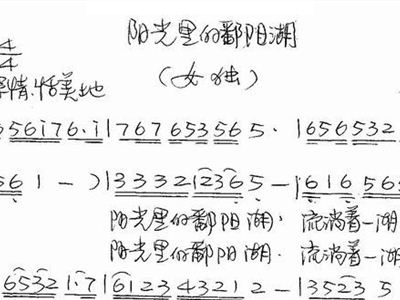 阳光里的鄱阳湖
4/4
(女独)
情.恬美地
5 5 6 i 7 6 · i | 7 6 7 6 6 5 3 5 6 5 · | 6 5 6 5 3 2
5 6 1 - ) | 3 3 3 2 1 2 3 6 5 - | 6 1 6 5 6
阳光里的鄱阳湖. 流淌着一湖
阳光里的鄱阳湖. 流淌着一湖
6 5 3 2 1 · 7 | 6 1 2 3 4 3 2 1 2 - | 3 5 2 3 5